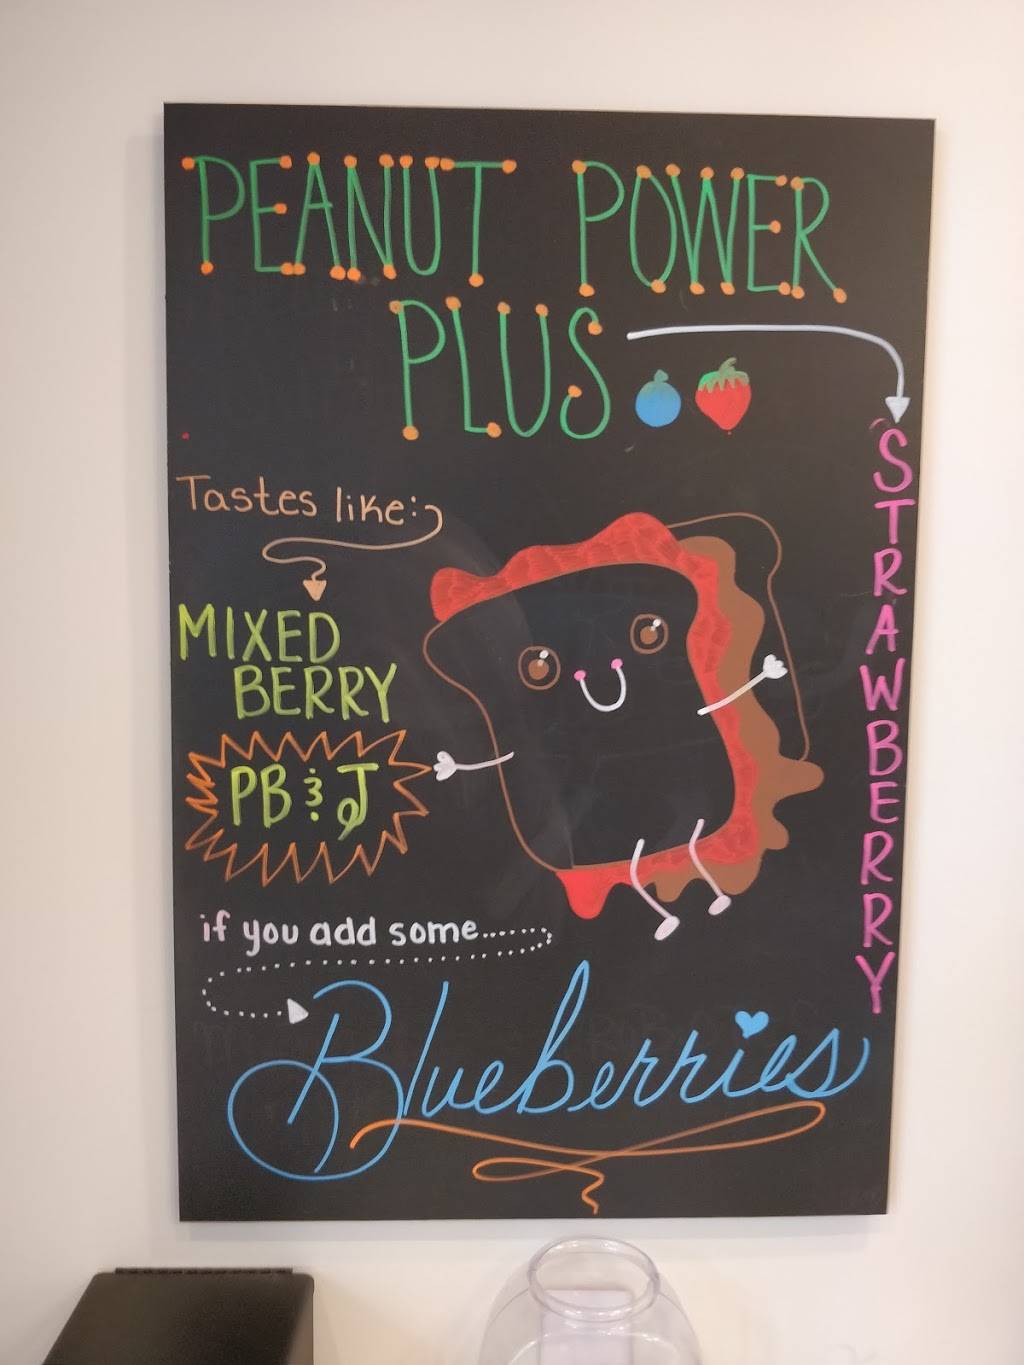 PEANUT POWER
PLUS
STRAWBERRY
Tastes like:
MIXED
BERRY
PB & J
if you add some......
Blueberries